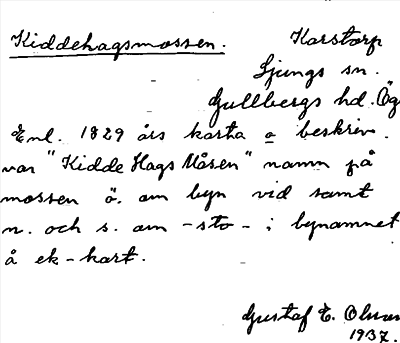 Kiddehagsmossen. Karstorp
Ljungs sn.
Gullbergs hd. Ög
Enl. 1829 års karta o beskriv.
var "Kidde Hags Måsen" namn på
mossen ö. om byn vid samt
n. och s. om -sto- i bynamnet
å ek-kart.
Gustaf E. Olsson
1937.